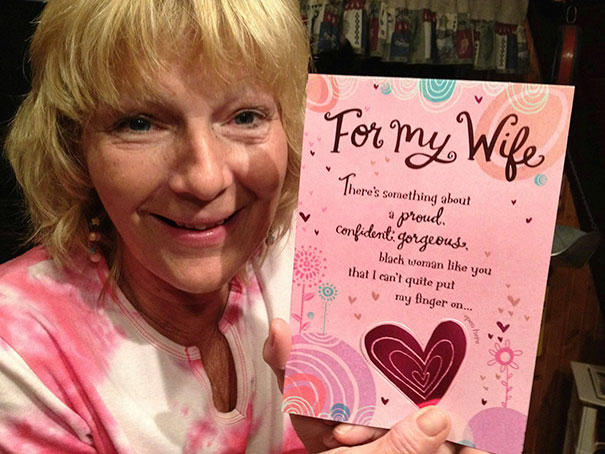 For my Wife
There's something about
a proud,
confident, gorgeous,
black woman like you
that I can't quite put
my finger on...
open here